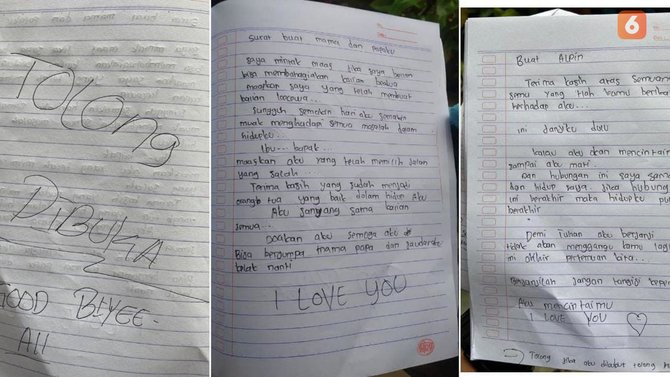 TOLONG
DIBUKA
GOOD BEYEE
All
Surat buat mama dan papaku
saya mintak maaf jika saya belum
bisa membahagiakan kalian berdua
maafkan saya yang telah membuat
kalian kecewa...
Sungguh semakin hari aku semakin
muak menghadapi semua masalah dalam
hidupku...
Ibu... bapak...
maafkan aku yang telah memilih jalan
yang salah
Terima kasih yang sudah menjadi
orang tua yang baik dalam hidup Aku
Aku sangyang sama kalian
semua...
Doakan aku semoga aku
Bisa berjumpa mama papa dan saudara
nanti
I LOVE YOU
6
Buat Alpin
Terima kasih atas semuanya
yang telah kamu berika
terhadap aku...
ini janjiku dulu
kalau aku akan mencintai
sampai aku mati
Dan hubungan ini saya
dan hidup saya jika hubung
ini berakhir maka hidupku pu
berakhir
Demi tuhan aku berjanji
tidak akan menggangu kamu lagi
ini akhir pertemuan kita...
jangan tangisi
Aku mencintaimu
I LOVE YOU
Tolong jika aku tolong